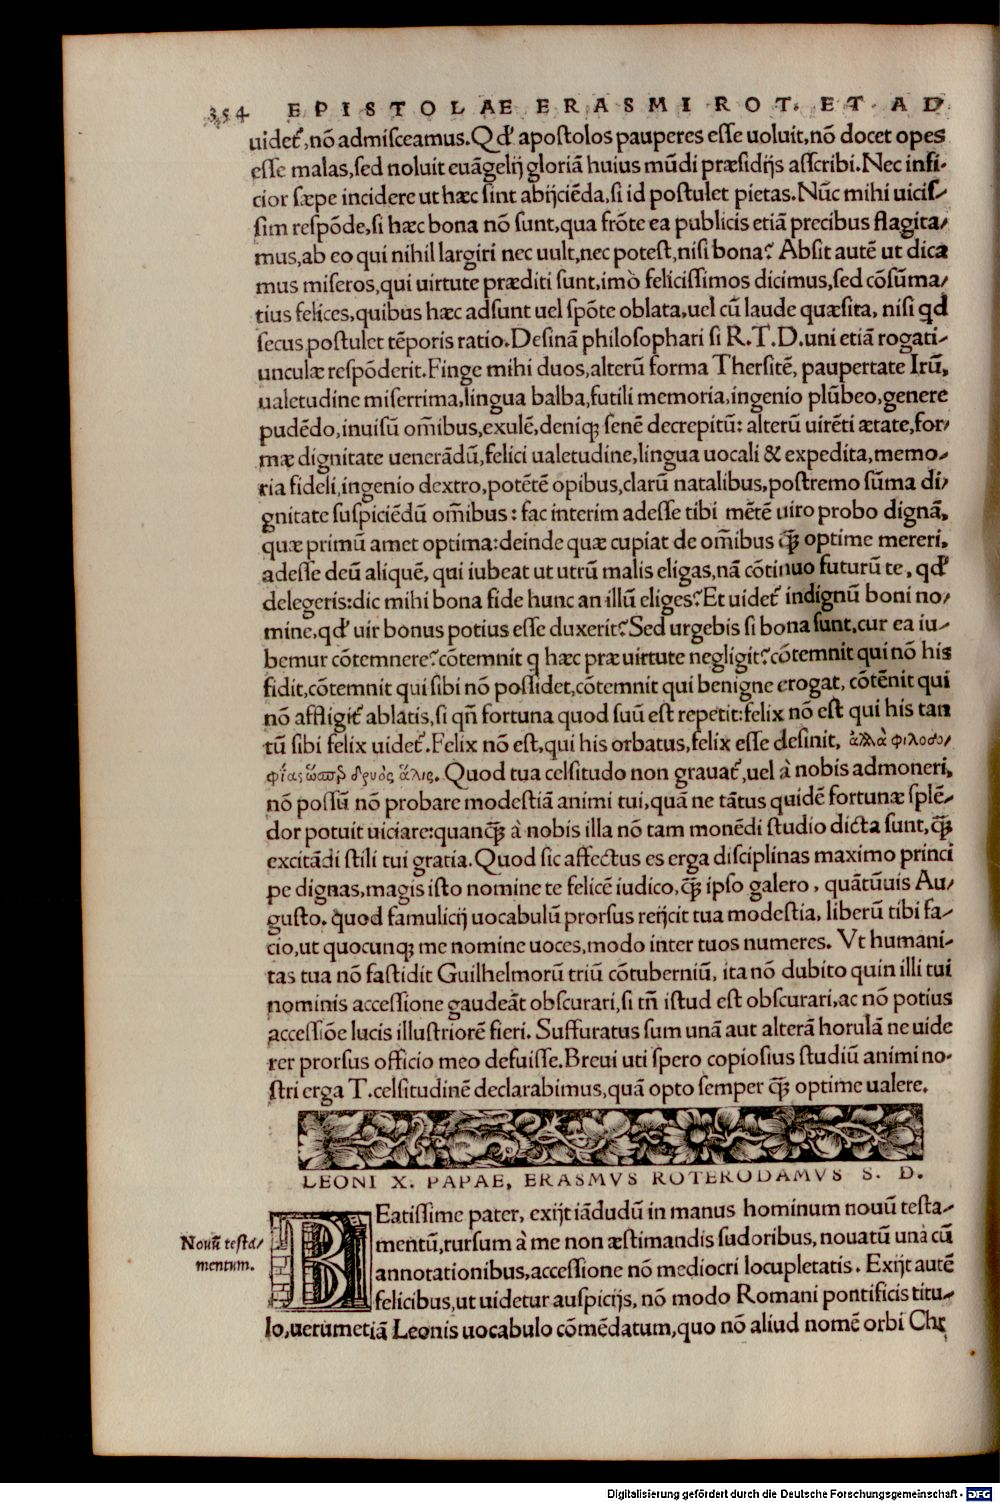 354 EPISTOLAE ERASMI ROT. ET AD
uidet᷑,nō admisceamus.Qd᷑ apostolos pauperes esse uoluit,nō docet opes
esse malas,sed noluit euāgelij gloriā huius mūdi præsidijs asscribi.Nec infi-
cior sæpe incidere ut hæc sint abijciēda,si id postulet pietas.Nūc mihi uicis-
sim respōde,si hæc bona nō sunt,qua frōte ea publicis etiā precibus flagita/
mus,ab eo qui nihil largiri nec uult,nec potest,nisi bona? Absit autē ut dica
mus miseros,qui uirtute præditi sunt,imò felicissimos dicimus,sed cōsūma/
tius felices,quibus hæc adsunt uel spōte oblata,uel cū laude quæsita, nisi qd
secus postulet tēporis ratio.Desinā philosophari si R.T.D.uni etiā rogati-
unculæ respōderit.Finge mihi duos,alterū forma Thersitē, paupertate Irū,
ualetudine miserrima,lingua balba,futili memoria,ingenio plūbeo,genere
pudēdo,inuisū om̄ibus,exulē,deniq; senē decrepitū: alterū uirēti ætate,for/
mæ dignitate uenerādū,felici ualetudine,lingua uocali & expedita,memo-
ria fideli,ingenio dextro,potētē opibus,clarū natalibus,postremo sūma di/
gnitate suspiciēdū om̄ibus: fac interim adesse tibi mētē uiro probo dignā,
quæ primū amet optima:deinde quæ cupiat de om̄ibus q̄ȝ optime mereri,
adesse deū aliquē, qui iubeat ut utrū malis eligas,nā cōtinuo futurū te, qd᷑
delegeris:dic mihi bona fide hunc an illū eliges? Et uidet᷑ indignū boni no/
mine,qd᷑ uir bonus potius esse duxerit? Sed urgebis si bona sunt,cur ea iu-
bemur cōtemnere? cōtemnit q hæc præ uirtute negligit? cōtemnit qui nō his
fidit,cōtemnit qui sibi nō possidet,cōtemnit qui benigne erogat, cōtēnit qui
nō affligit᷑ ablatis,si qn̄ fortuna quod suū est repetit:felix nō est qui his tan
tū sibi felix uidet᷑.Felix nō est,qui his orbatus,felix esse desinit, ἀλλὰ φιλοσο/
φίας ὥσπερ δρυὸς ἅλις. Quod tua celsitudo non grauat᷑,uel à nobis admoneri,
nō possū nō probare modestiā animi tui,quā ne tātus quidē fortunæ splē-
dor potuit uiciare:quanq̄ȝ à nobis illa nō tam monēdi studio dicta sunt,q̄ȝ
excitādi stili tui gratia.Quod sic affectus es erga disciplinas maximo princi
pe dignas,magis isto nomine te felicē iudico,q̄ȝ ipso galero, quātūuis Au/
gusto. quod famulicij uocabulū prorsus reijcit tua modestia, liberū tibi fa-
cio,ut quocunq; me nomine uoces,modo inter tuos numeres. Vt humani-
tas tua nō fastidit Guilhelmorū triū cōtuberniū, ita nō dubito quin illi tui
nominis accessione gaudeāt obscurari,si tn̄ istud est obscurari,ac nō potius
accessiōe lucis illustriorē fieri. Suffuratus sum unā aut alterā horulā ne uide
rer prorsus officio meo defuisse.Breui uti spero copiosius studiū animi no-
stri erga T.celsitudinē declarabimus,quā opto semper q̄ȝ optime ualere.
LEONI X. PAPAE, ERASMVS ROTERODAMVS S. D.
BEatissime pater, exijt iādudū in manus hominum nouū testa-
Nouū testa/
mentum.
mentū,rursum à me non æstimandis sudoribus, nouatū unà cū
annotationibus,accessione nō mediocri locupletatis. Exijt autē
felicibus,ut uidetur auspicijs, nō modo Romani pontificis titu-
lo,uerumetiā Leonis uocabulo cōmēdatum,quo nō aliud nomē orbi Chr
Digitalisierung gefördert durch die Deutsche Forschungsgemeinschaft - DFG